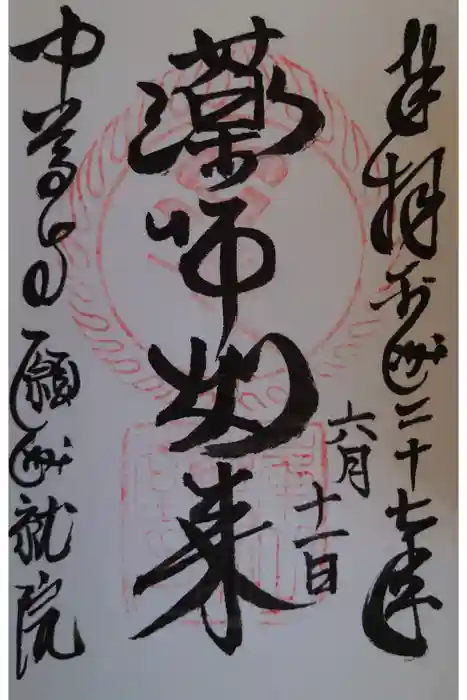 奉拝 平成二十七年
六月
十一日
薬師如来
中尊寺 願成就院